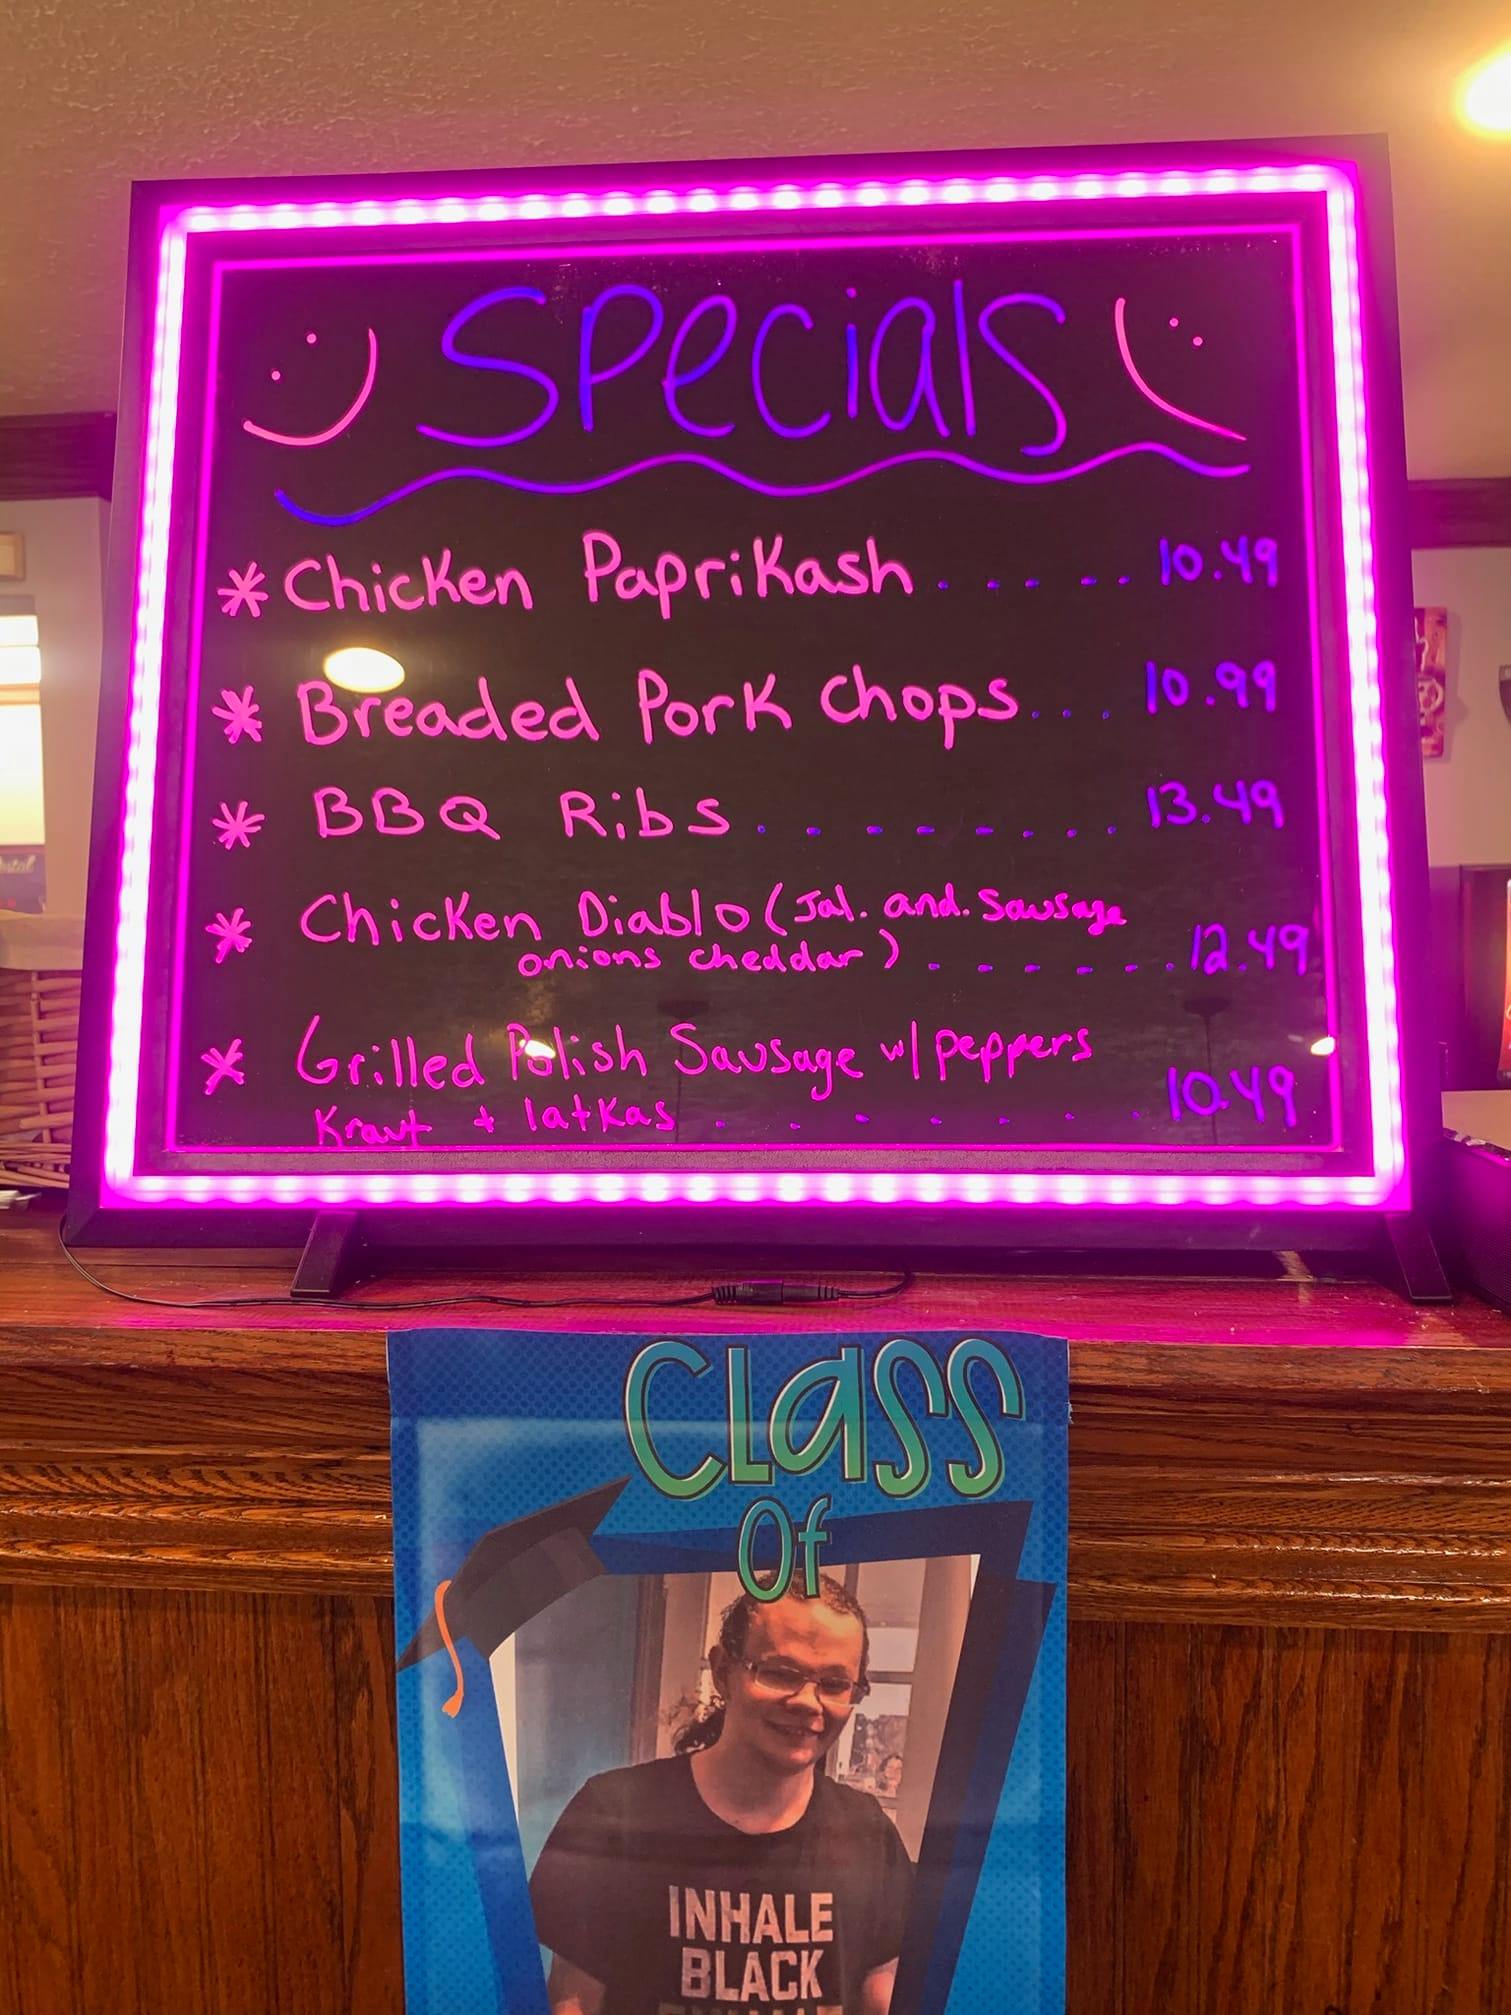 Specials
* Chicken Paprikash . . . . . . 10.49
* Breaded Pork Chops . . . 10.99
* BBQ Ribs . . . . . . . 13.49
* Chicken Diablo (Jal. and. Sausage
onions cheddar) . . . . . . 12.49
* Grilled Polish Sausage w/ peppers
Kraut + latkas . . . . . . 10.49
CLaSS
Of
INHALE
BLACK